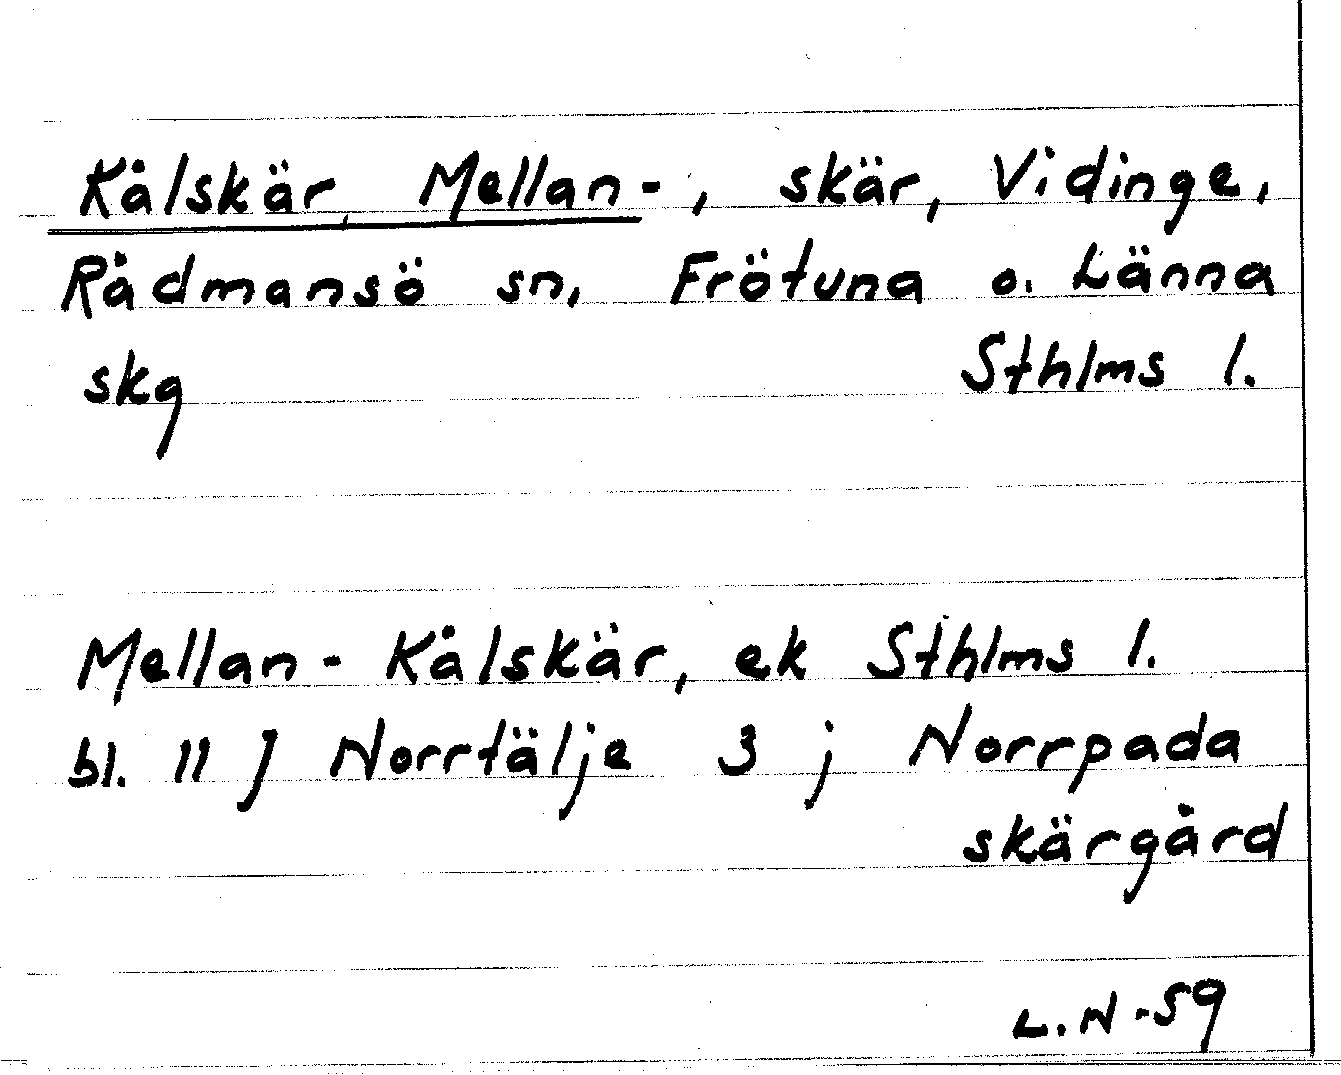 Kålskär, Mellan-, skär, Vidinge,
Rådmansö sn, Frötuna o. Länna
skg Sthlms l.
Mellan-Kålskär, ek Sthlms l.
bl. 11 J Norrtälje 3 j Norrpada
skärgård
L.N-59